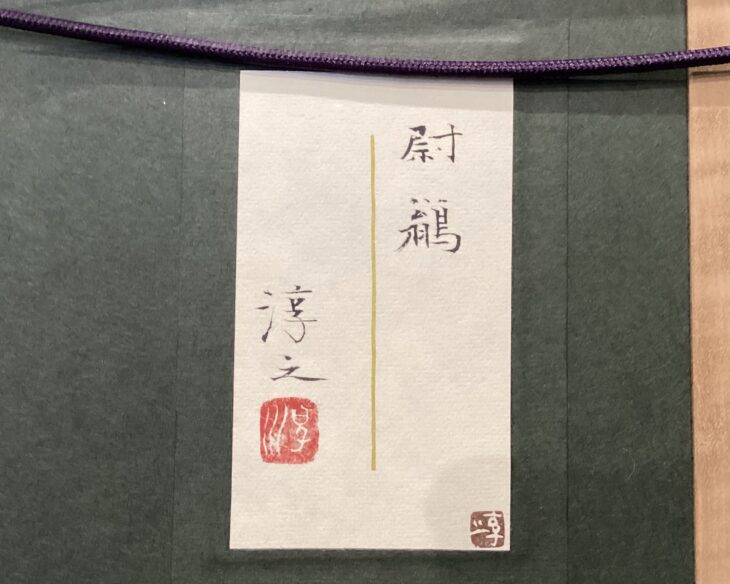 尉鶲
淳之
淳
淳